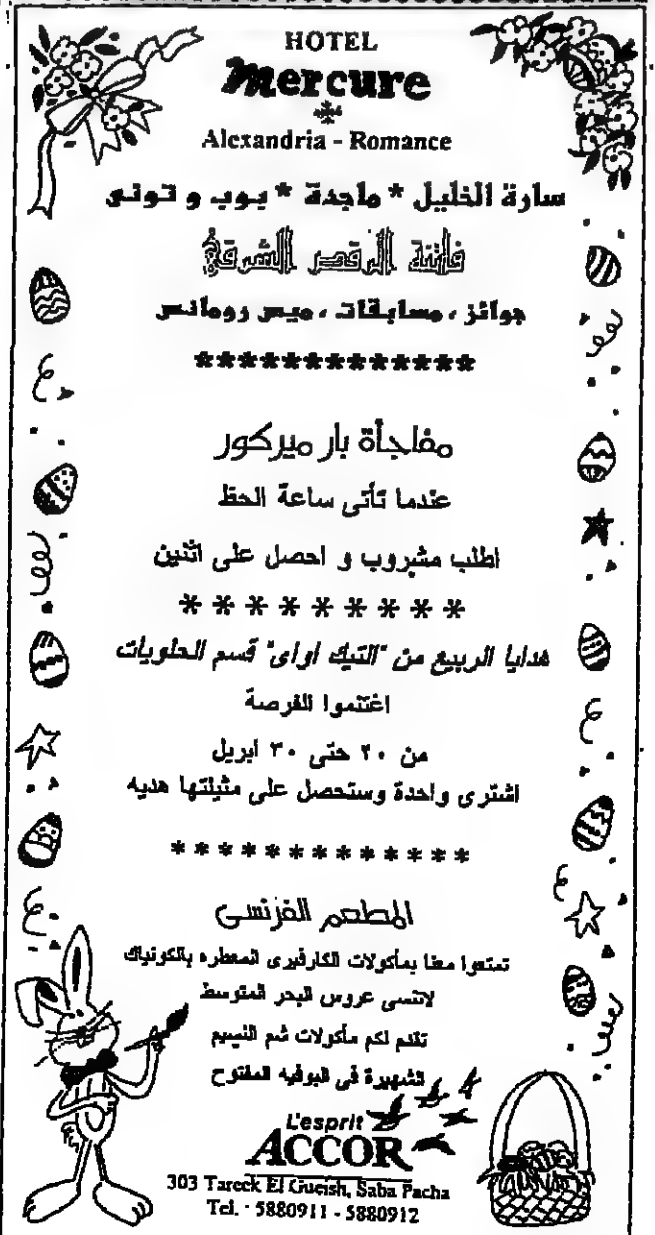 HOTEL
Mercure
Alexandria - Romance
سارة الخليل * ماجدة * بوب و تونى
فاتنة الرقص الشرقى
جوائز ، مسابقات ، ميس رومانس
*************
مفاجأة بار ميركور
عندما تأتى ساعة الحظ
اطلب مشروب و احصل على اثنين
* * * * * * * * * *
هدايا الربيع من "التيك اواى" قسم الحلويات
اغتنموا الفرصة
من ٢٠ حتى ٣٠ ابريل
اشترى واحدة وستحصل على مثيلتها هديه
* * * * * * * * * * * * *
المطعم الفرنسى
تمتعوا معنا بمأكولات الكارفيرى المعطره بالكونياك
لاننسى عروس البحر المتوسط
تقدم لكم مأكولات شم النسيم
الشهيرة فى البوفيه المفتوح
L'esprit
ACCOR
303 Tareck El Gueish, Saba Pacha
Tel. · 5880911 - 5880912